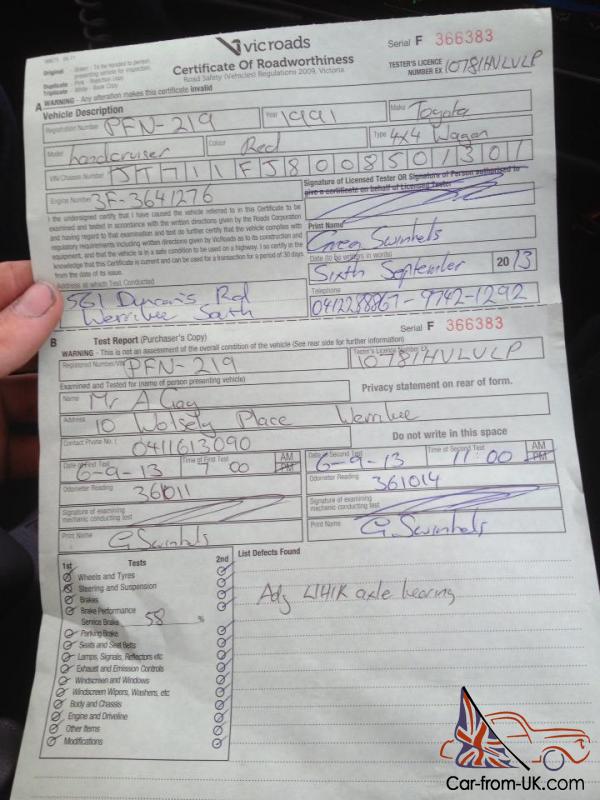 vicroads
Serial F 366383
Original - Green - To be handed to person presenting vehicle for inspection.
Duplicate - Pink - Rejection Copy
Triplicate - White - Book Copy
Certificate Of Roadworthiness
Road Safety (Vehicles) Regulations 2009, Victoria
TESTER'S LICENCE NUMBER EX 10781HVLVLP
A WARNING - Any alteration makes this certificate invalid
Vehicle Description
Registration Number PFN-219 Year 1991 Make Toyota
Model Landcruiser Colour Red Type 4x4 Wagon
VIN/Chassis Number JT711FJ8008501301
Engine Number 3F-3641276
Signature of Licensed Tester OR Signature of Person authorised to give a certificate on behalf of Licensed Tester
I the undersigned certify that I have caused the vehicle referred to in this Certificate to be
examined and tested in accordance with the written directions given by the Roads Corporation
and having regard to that examination and test do further certify that the vehicle complies with
regulatory requirements including written directions given by VicRoads as to its construction and
equipment, and that the vehicle is in a safe condition to be used on a highway. I so certify in the
knowledge that this Certificate is current and can be used for a transaction for a period of 30 days
from the date of its issue.
Print Name
Greg Swinkels
Date (to be written in words)
Sixth September 2013
Address at which Test Conducted
561 Duncan's Rd
Werribee South
Telephone
0412288867-9742-1292
Serial F 366383
B Test Report (Purchaser's Copy)
WARNING - This is not an assessment of the overall condition of the vehicle. (See rear side for further information)
Registered Number/VIN PFN-219
Tester's Licence Number EX 10781HVLVLP
Examined and Tested for (name of person presenting vehicle)
Privacy statement on rear of form.
Name Mr A
Address 10 Wolsely Place Werribee
Contact Phone No. 0411613090
Do not write in this space
Date of First Test 6-9-13 Time of First Test 7 00 AM PM
Date of Second Test 6-9-13 Time of Second Test 11:00 AM PM
Odometer Reading 361011
Odometer Reading 361014
Signature of examining mechanic conducting test
Signature of examining mechanic conducting test
Print Name G Swinkels
Print Name G. Swinkels
1st Tests 2nd
List Defects Found
Wheels and Tyres
Steering and Suspension
Brakes
Brake Performance
Service Brake 58 %
Parking Brake
Seats and Seat Belts
Lamps, Signals, Reflectors etc
Exhaust and Emission Controls
Windscreen and Windows
Windscreen Wipers, Washers, etc
Body and Chassis
Engine and Driveline
Other Items
Modifications
Adj axle bearing
Car-from-UK.com